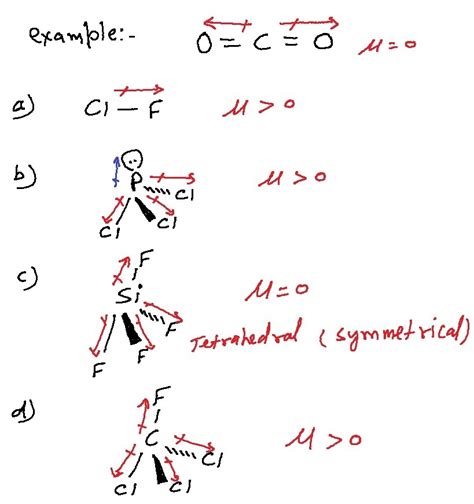 example:- O=C=O μ=0
a) Cl—F μ>0
b) P Cl Cl Cl μ>0
c) F Si F F F μ=0
Tetrahedral (symmetrical)
d) F C Cl Cl Cl μ>0